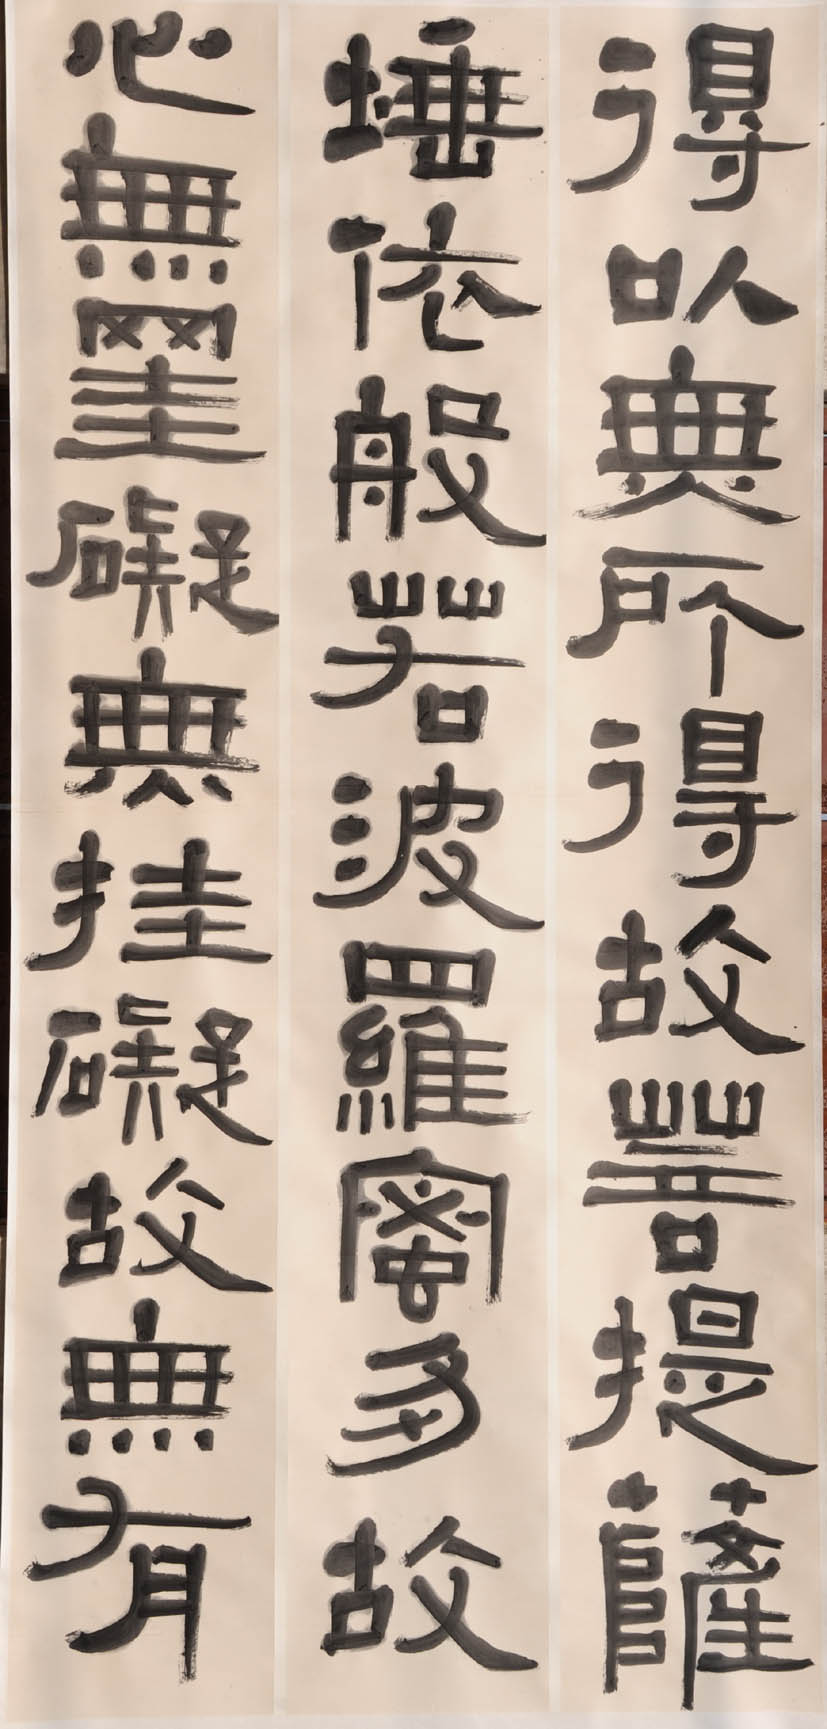 得以無所得故菩提薩
埵依般若波羅蜜多故
心無罣礙無挂礙故無有